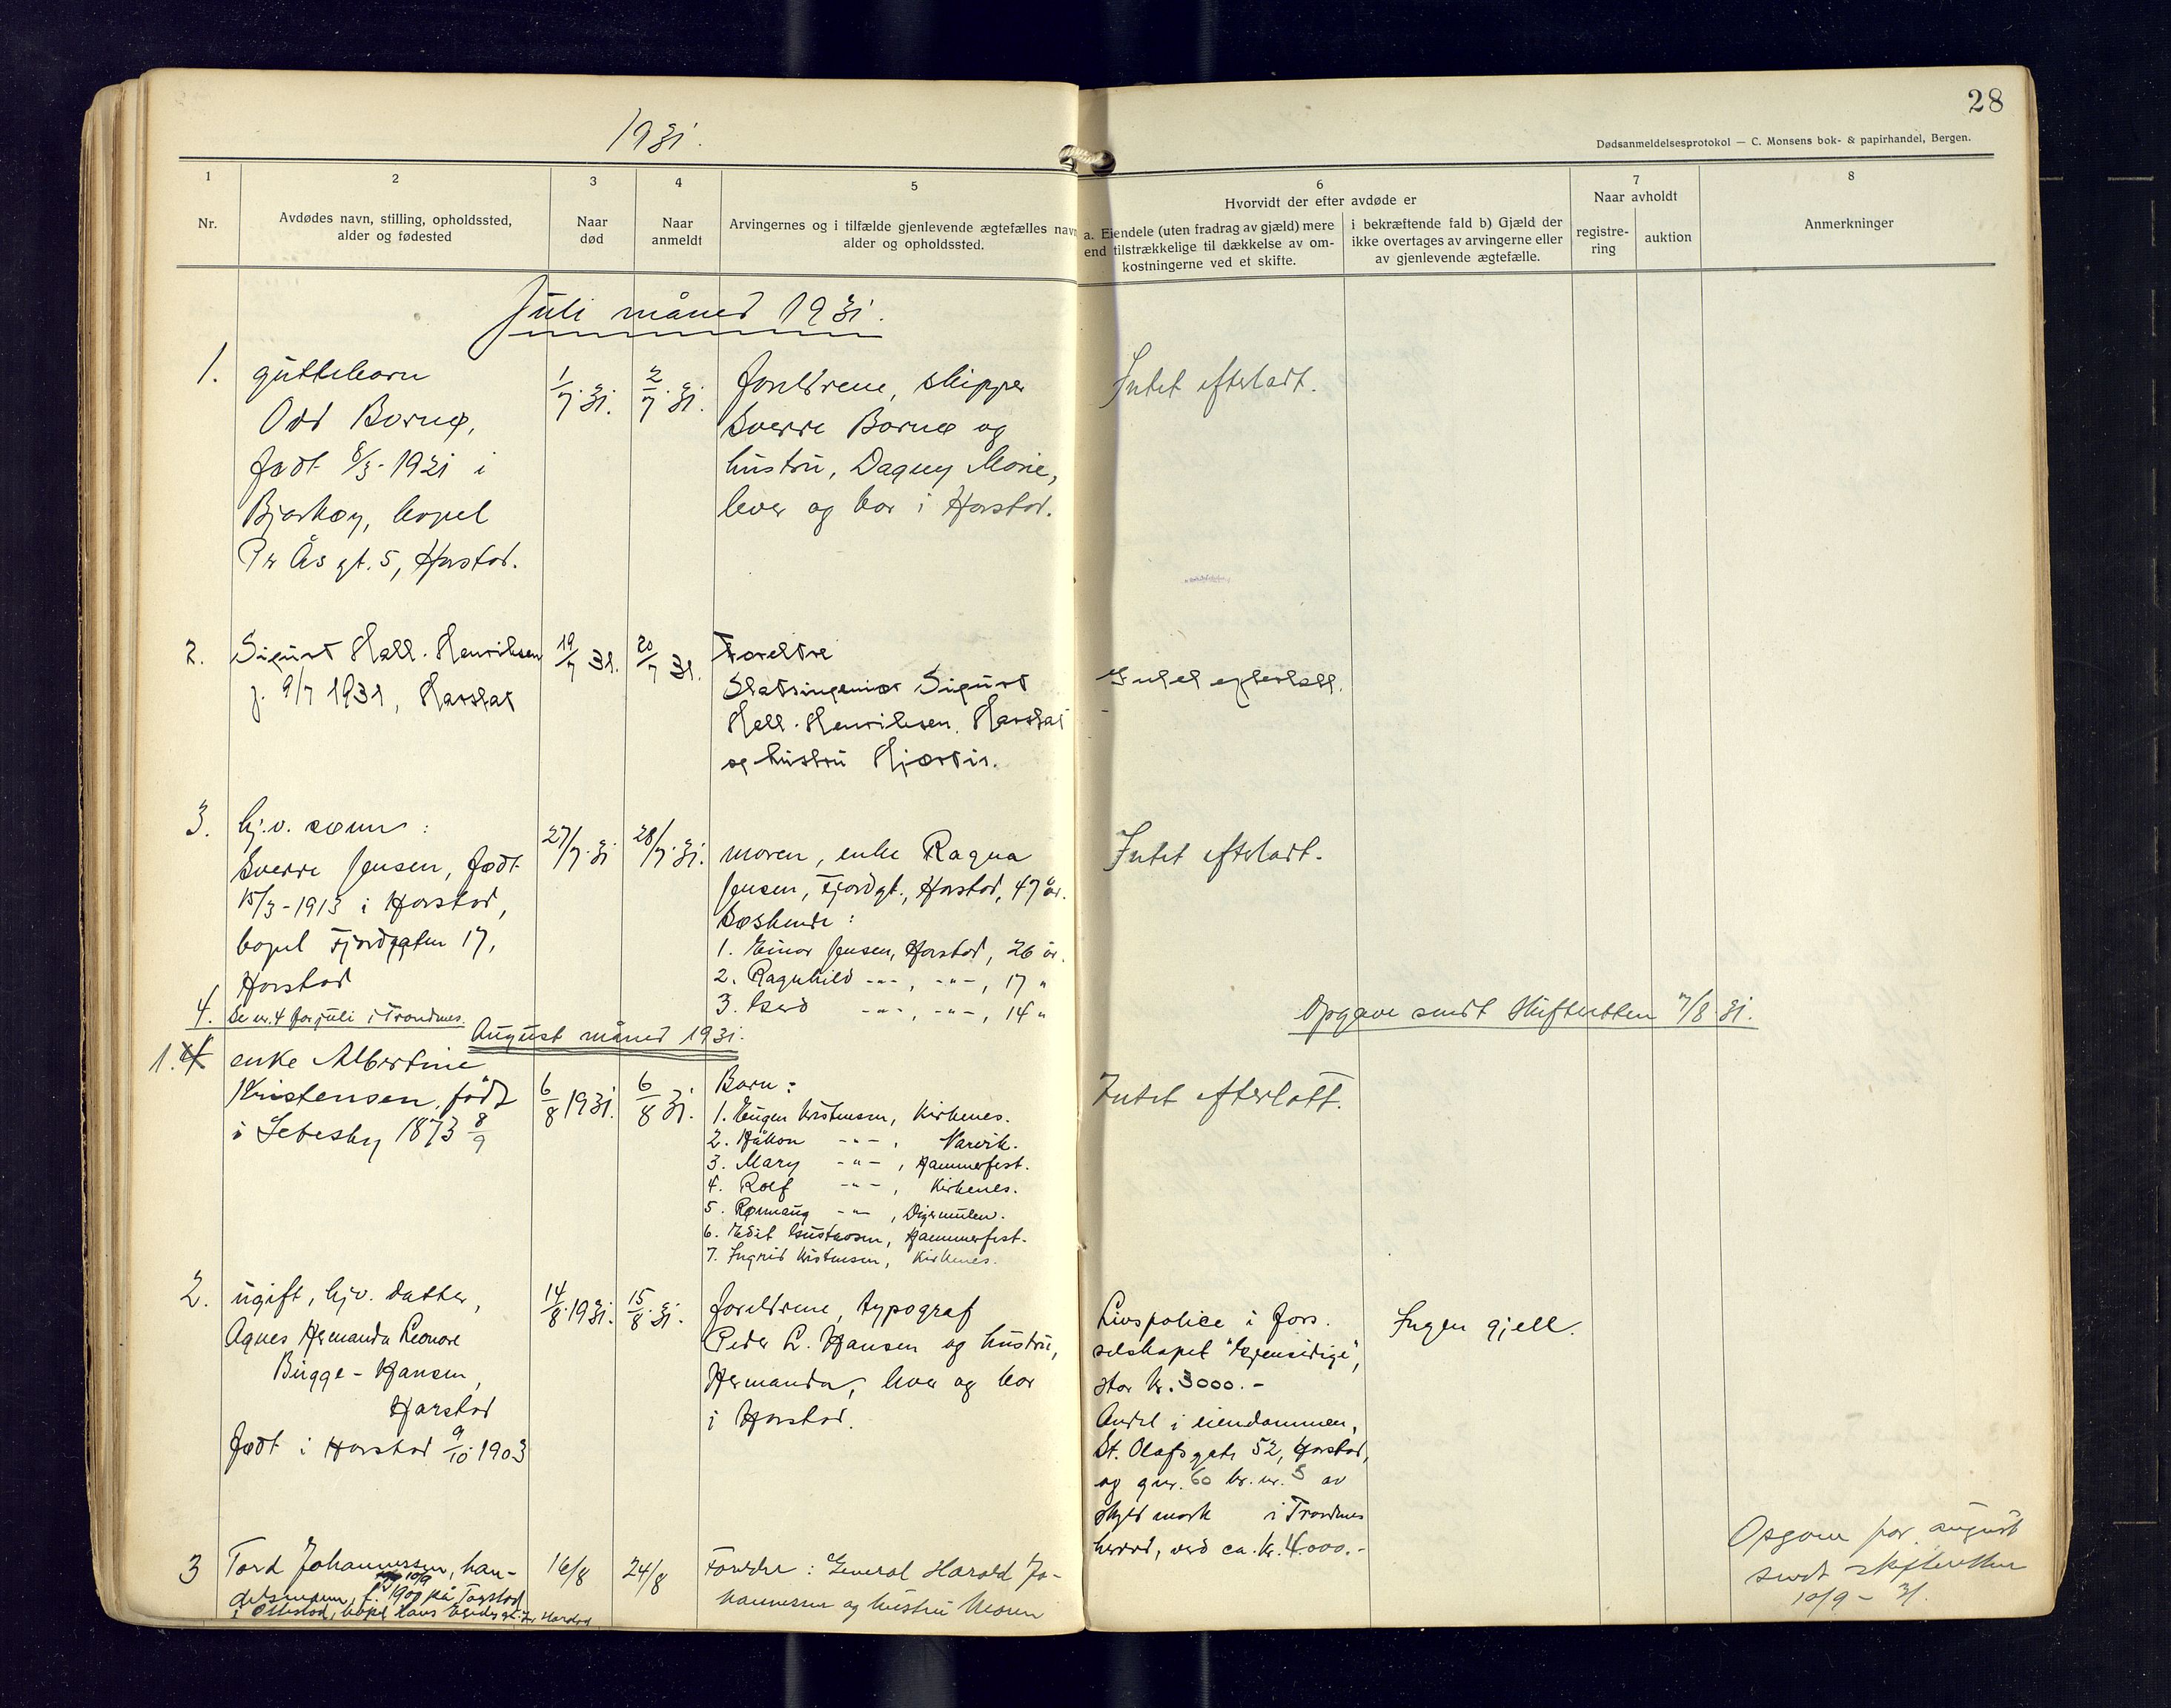 28
1931.
Dødsanmeldelsesprotokol — C. Monsens bok- & papirhandel, Bergen.
1
Nr.
2
Avdødes navn, stilling, opholdssted,
alder og fødested
3
Naar
død
4
Naar
anmeldt
5
Arvingernes og i tilfælde gjenlevende ægtefælles navn
alder og opholdssted.
6
Hvorvidt der efter avdøde er
a. Eiendele (uten fradrag av gjæld) mere
end tilstrækkelige til dækkelse av om-
kostningerne ved et skifte.
i bekræftende fald b) Gjæld der
ikke overtages av arvingerne eller
av gjenlevende ægtefælle.
7
Naar avholdt
registre-
ring
auktion
8
Anmerkninger
Juli måned 1931.
1.
guttebarn
Odd Bornø,
født 8/3-1931 i
Bjarkøy, bopel
Pr Ås gt. 5, Harstad.
1/7.31.
2/7.31.
foreldrene, skipper
Sverre Bornø og
hustru, Dagny Marie,
lever og bor i Harstad.
Intet efterladt.
2.
Sigurt Hall-Henriksen
f. 9/7 1931, Harstad
19/7 31.
20/7 31.
Foreldre
Statsingeniør Sigurt
Hall-Henriksen, Harstad
og hustru Hjørdis.
Intet efterlatt.
3.
hj.v. sønn:
Sverre Jensen, født
15/3-1913 i Harstad,
bopel Fjordgaten 17,
Harstad
27/7.31
28/7.31.
moren, enke Ragna
Jensen, Fjordgt., Harstad, 47 år.
Søskende:
1. Einar Jensen, Harstad, 26 år.
2. Ragnhild -"-, -"-, 17 "
3. Gerd -"-, -"-, 14 "
Intet efterladt.
4. Se nr. 4 for juli i Trondenes.
Opgave sendt Skifteretten 7/8.31.
August måned 1931.
1. 4
enke Albertine
Kristensen, født
i Lebesby 1873 8/9
6/8 1931.
6/8 31.
Barn:
1. Eugen Kristensen, Kirkenes.
2. Håkon -"-, Narvik.
3. Mary -"-, Hammerfest.
4. Rolf -"-, Kirkenes.
5. Rønnaug -"-, Digermulen.
6. Edit Gustavsen, Hammerfest.
7. Ingrid Kristensen, Kirkenes.
Intet efterlatt.
2.
ugift, hjv. datter,
Agnes Hermanda Leonore
Bugge-Hansen,
Harstad
født i Harstad 9/10 1903
14/8.1931.
15/8.31.
foreldrene, typograf
Peder L. Hansen og hustru,
Hermanda, lever og bor
i Harstad.
Livspolice i fors.
selskapet "Gjensidige",
stor kr. 3000.-
Andel i eiendommen,
St. Olafsgate 52, Harstad,
og gnr. 60 br. nr. 5 av
skyld mark i Trondenes
herred, verd ca. kr. 4.000.-
Ingen gjell.
3
Tord Johannessen, han-
delsmann, f. 10/9 1909 på Tarstad
i Ottestad, bopel Hans Egedes gt. Harstad
16/8
24/8
Foreldre: General Harald Jo-
hannessen og hustru Maren
Opgave for august
sendt skifteretten
10/9 - 31.